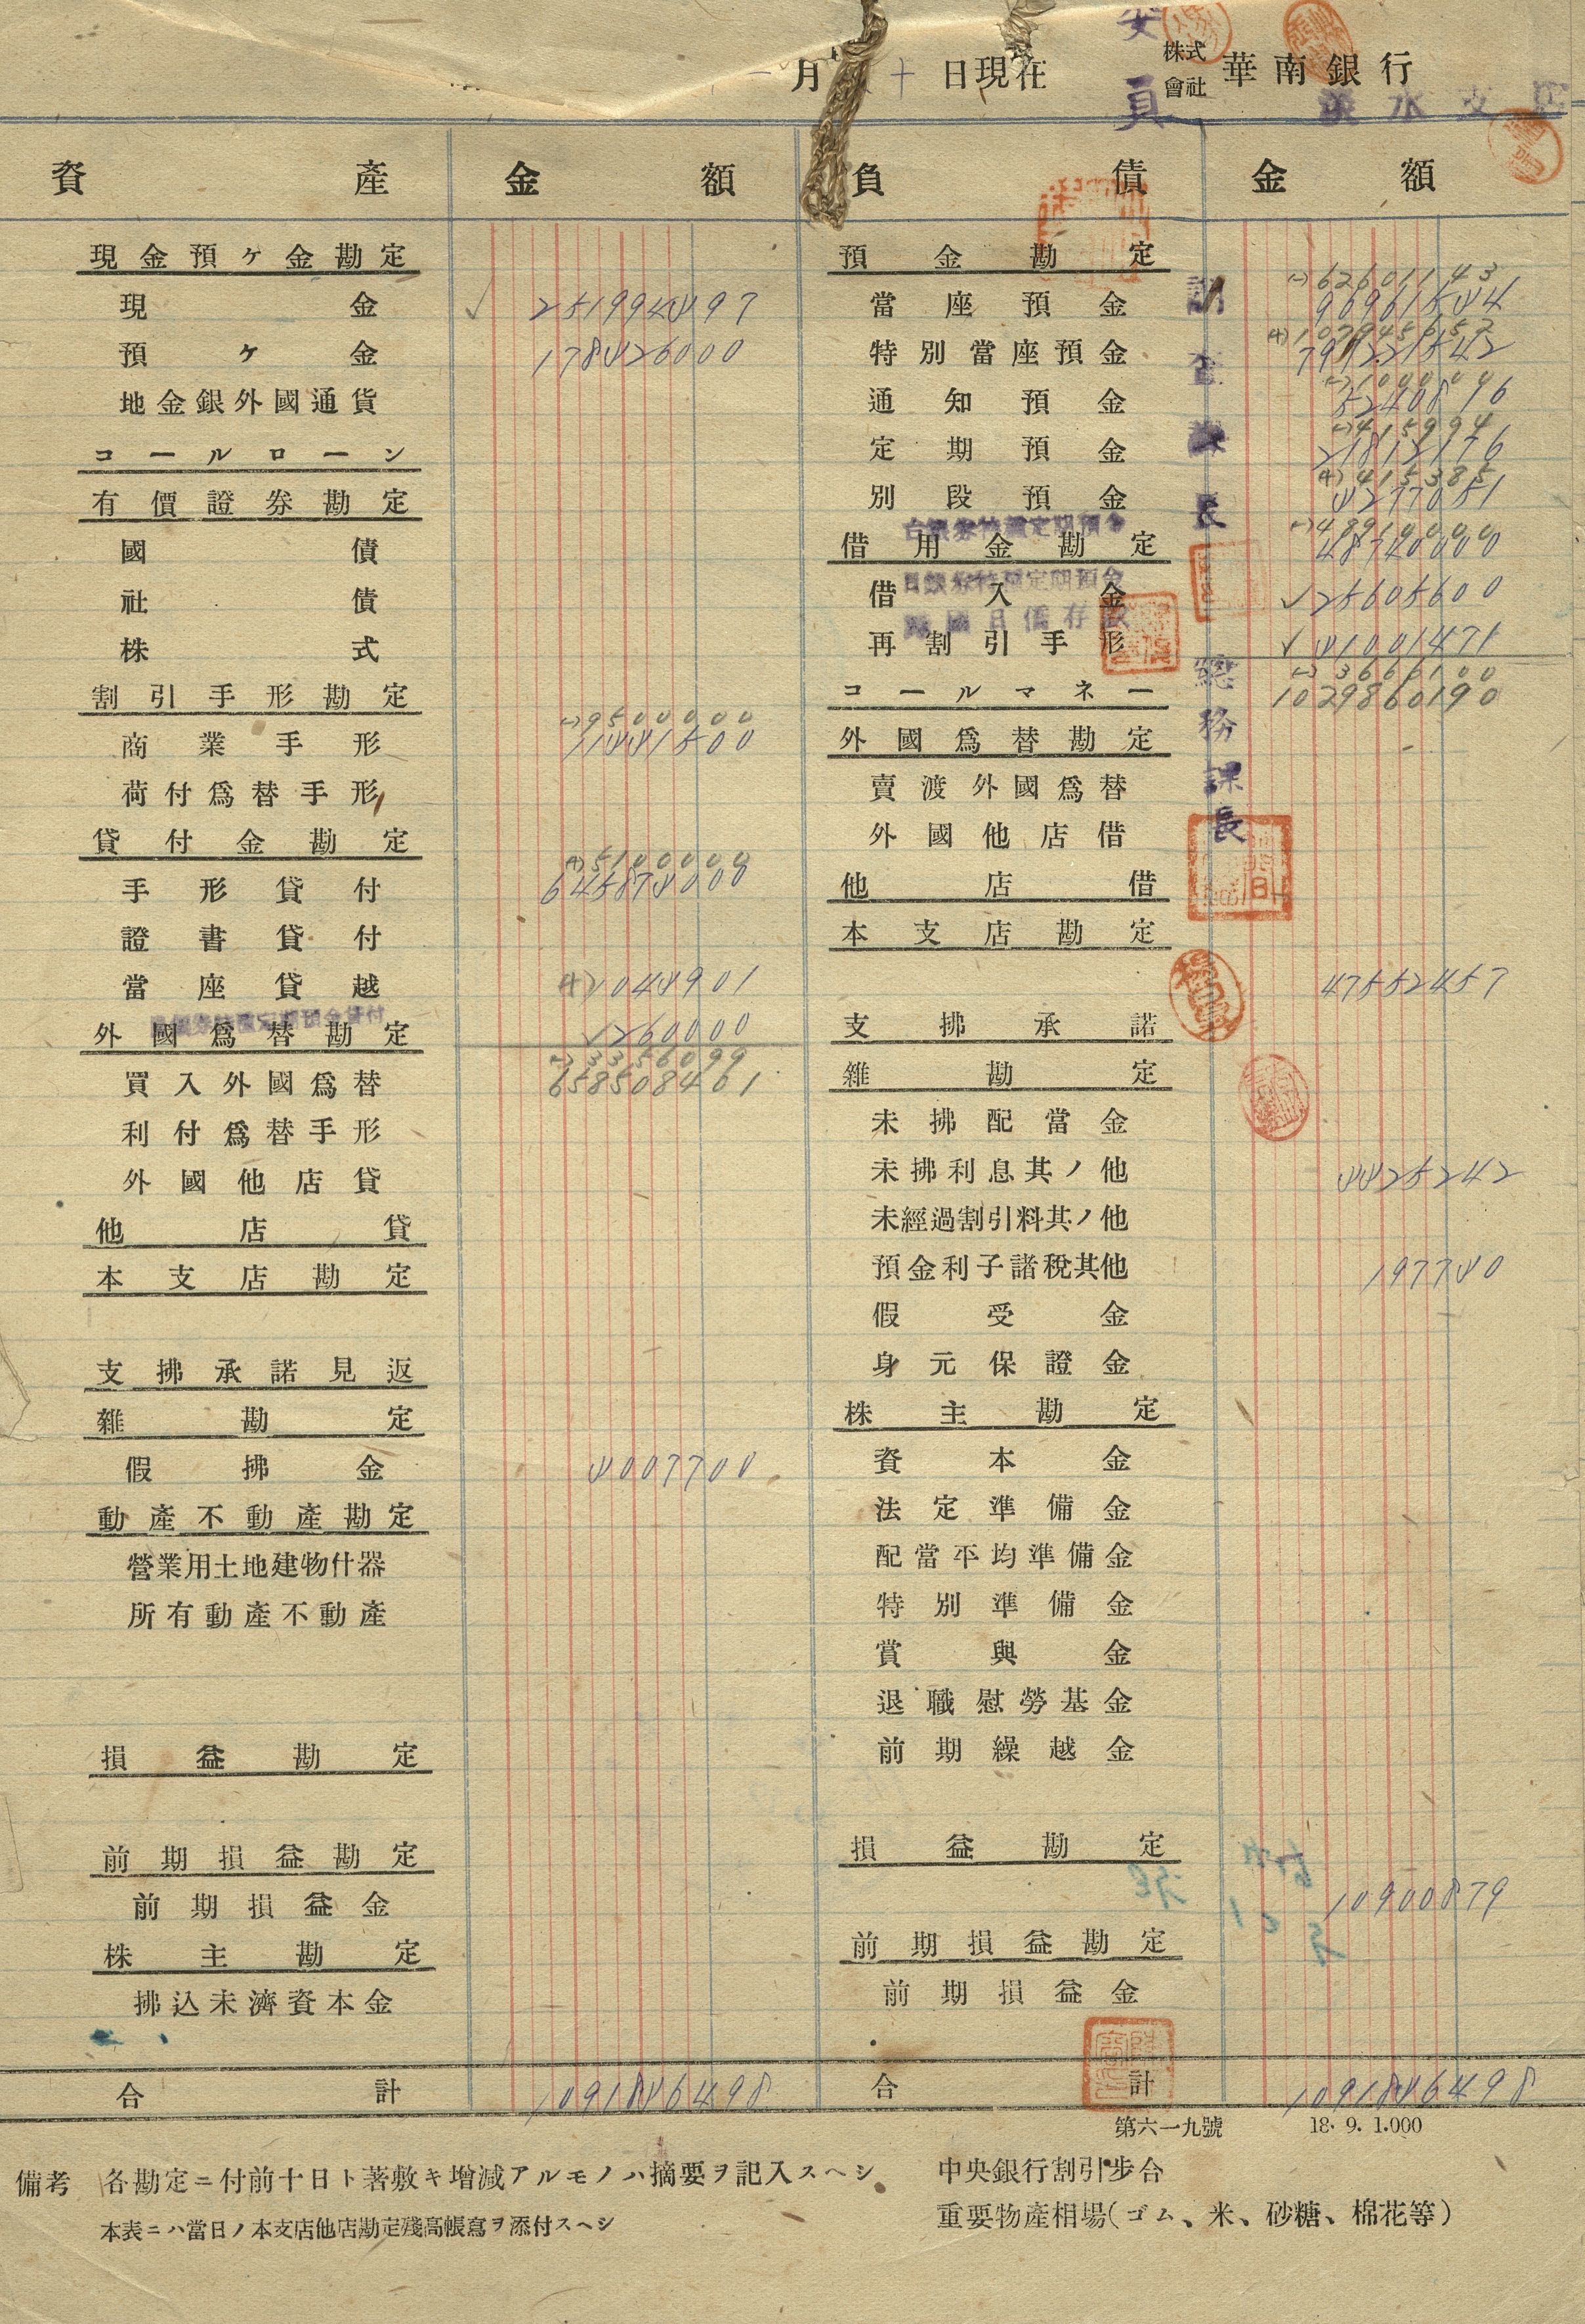 月 十 日現在
株式會社 華南銀行
淡水支店
委員
資產 金額 負債 金額
現金預ケ金勘定
現金 251994497
預ケ金 178426000
地金銀外國通貨
コールローン
有價證券勘定
國債
社債
株式
割引手形勘定
(-)9500000
商業手形 11441500
荷付爲替手形
貸付金勘定
(+)5100000
手形貸付 645874000
證書貸付
當座貸越
外國爲替勘定 260000
(-)3356099
買入外國爲替 658508401
利付爲替手形
外國他店貸
他店貸
本支店勘定
支拂承諾見返
雜勘定
假拂金 4007700
動產不動產勘定
營業用土地建物什器
所有動產不動產
損益勘定
前期損益勘定
前期損益金
株主勘定
拂込未濟資本金
合計 1091846498
預金勘定
(-)62601143
當座預金
特別當座預金
(-)1000000
通知預金 5240896
(-)415994
定期預金 21812176
(+)415385
別段預金 4277051
台銀券特種定期預金
(-)48910000
借用金勘定 48740000
日銀券特種定期預金
借入金 25605600
歸國日僑存款
再割引手形 41001471
(-)3666100
コールマネー 1029860190
外國爲替勘定
賣渡外國爲替
外國他店借
他店借
本支店勘定
47552457
支拂承諾
雜勘定
未拂配當金
未拂利息其ノ他 4425242
未經過割引料其ノ他
預金利子諸稅其他 197740
假受金
身元保證金
株主勘定
資本金
法定準備金
配當平均準備金
特別準備金
賞與金
退職慰勞基金
前期繰越金
損益勘定
10900879
前期損益勘定
前期損益金
合計 1091846498
總務課長
第六一九號 18. 9. 1.000
備考 各勘定ニ付前十日ト著敷キ增減アルモノハ摘要ヲ記入スヘシ
本表ニハ當日ノ本支店他店勘定殘高帳寫ヲ添付スヘシ
中央銀行割引步合
重要物產相場(ゴム、米、砂糖、棉花等)